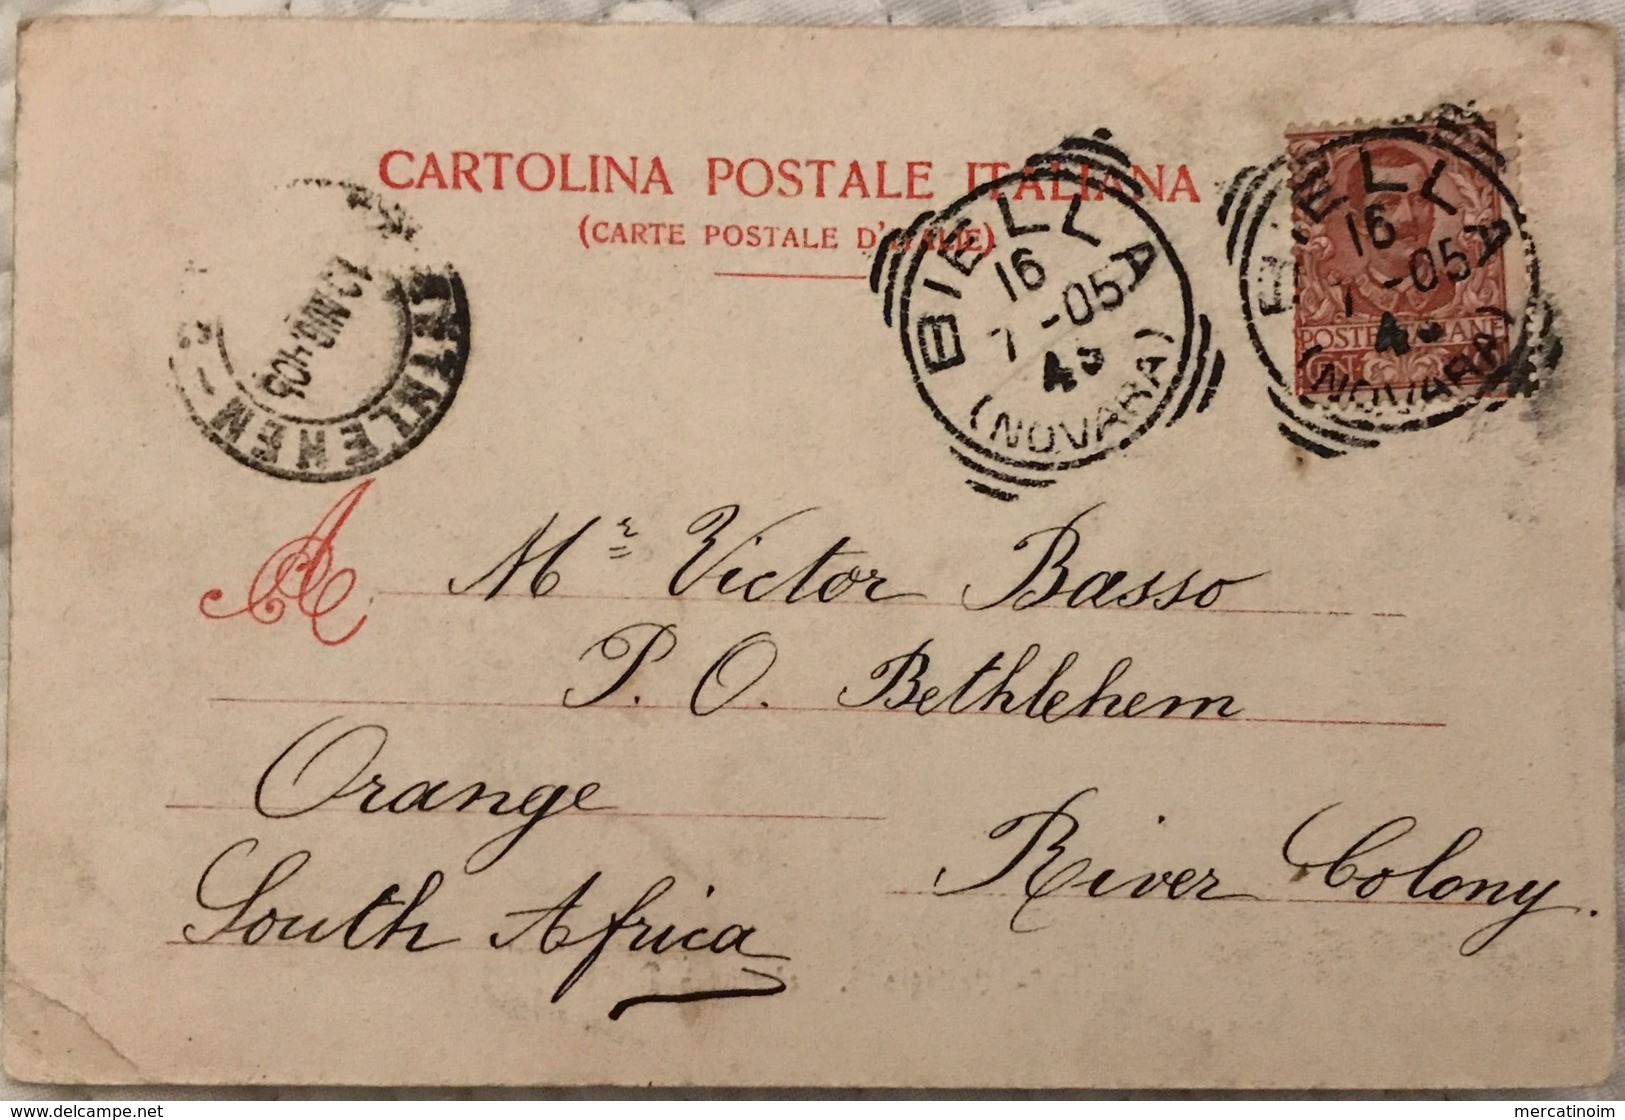 CARTOLINA POSTALE ITALIANA
(CARTE POSTALE D'ITALIE)
BIELLA
16
7 -05
(NOVARA)
BIELLA
16
7 -05
(NOVARA)
POSTE ITALIANE
A Mr Victor Basso
P. O. Bethlehem
Orange
River Colony.
South Africa
mercatinoim